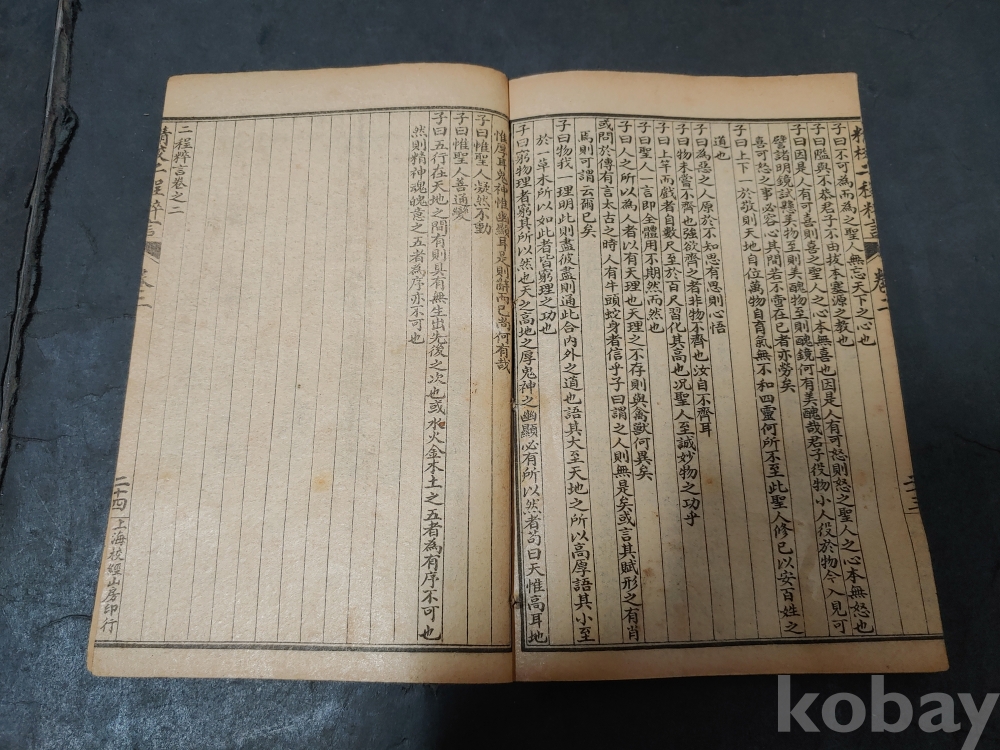 精校二程粹言 卷二 二十三
子曰不可為而為之聖人無忘天下之心也
子曰隘與不恭君子不由拔本塞源之教也
子曰因是人有可喜則喜之聖人之心本無喜也因是人有可怒則怒之聖人之心本無怒也
譬諸明鏡試懸美物至則美醜物至則醜鏡何有美醜哉君子役物小人役於物今人見可
喜可怒之事必容心其間若不雪在己者亦勞矣
子曰上下一於敬則天地自位萬物自育氣無不和四靈何所不至此聖人修己以安百姓之
道也
子曰為惡之人原於不知思有思則心悟
子曰物未嘗不齊也強欲齊之者非物不齊也汝自不齊耳
子曰上竿而戲者自數尺至於百尺習化其高也況聖人至誠妙物之功乎
子曰聖人一言即全體用不期然而然也
子曰人之所以為人者以有天理也天理之不存則與禽獸何異矣
或問於傳有言太古之時人有牛頭蛇身者信乎子曰謂之人則無是矣或言其賦形之有肖
焉則可謂云爾已矣
子曰物我一理明此則盡彼盡則通此合內外之道也語其大至天地之所以高厚語其小至
於一草木所以如此者皆窮理之功也
子曰窮物理者窮其所以然也天之高地之厚鬼神之幽顯必有所以然者苟曰天惟高耳地
惟厚耳鬼神惟幽顯耳是則辭而已尚何有哉
子曰惟聖人凝然不動
子曰惟聖人善通變
子曰五行在天地之間有則具有無生出先後之次也或水火金木土之五者為有序不可也
然則精神魂魄意之五者為序亦不可也
二程粹言卷之二
精校二程粹言 卷二 二十四 上海校經山房印行
kobay